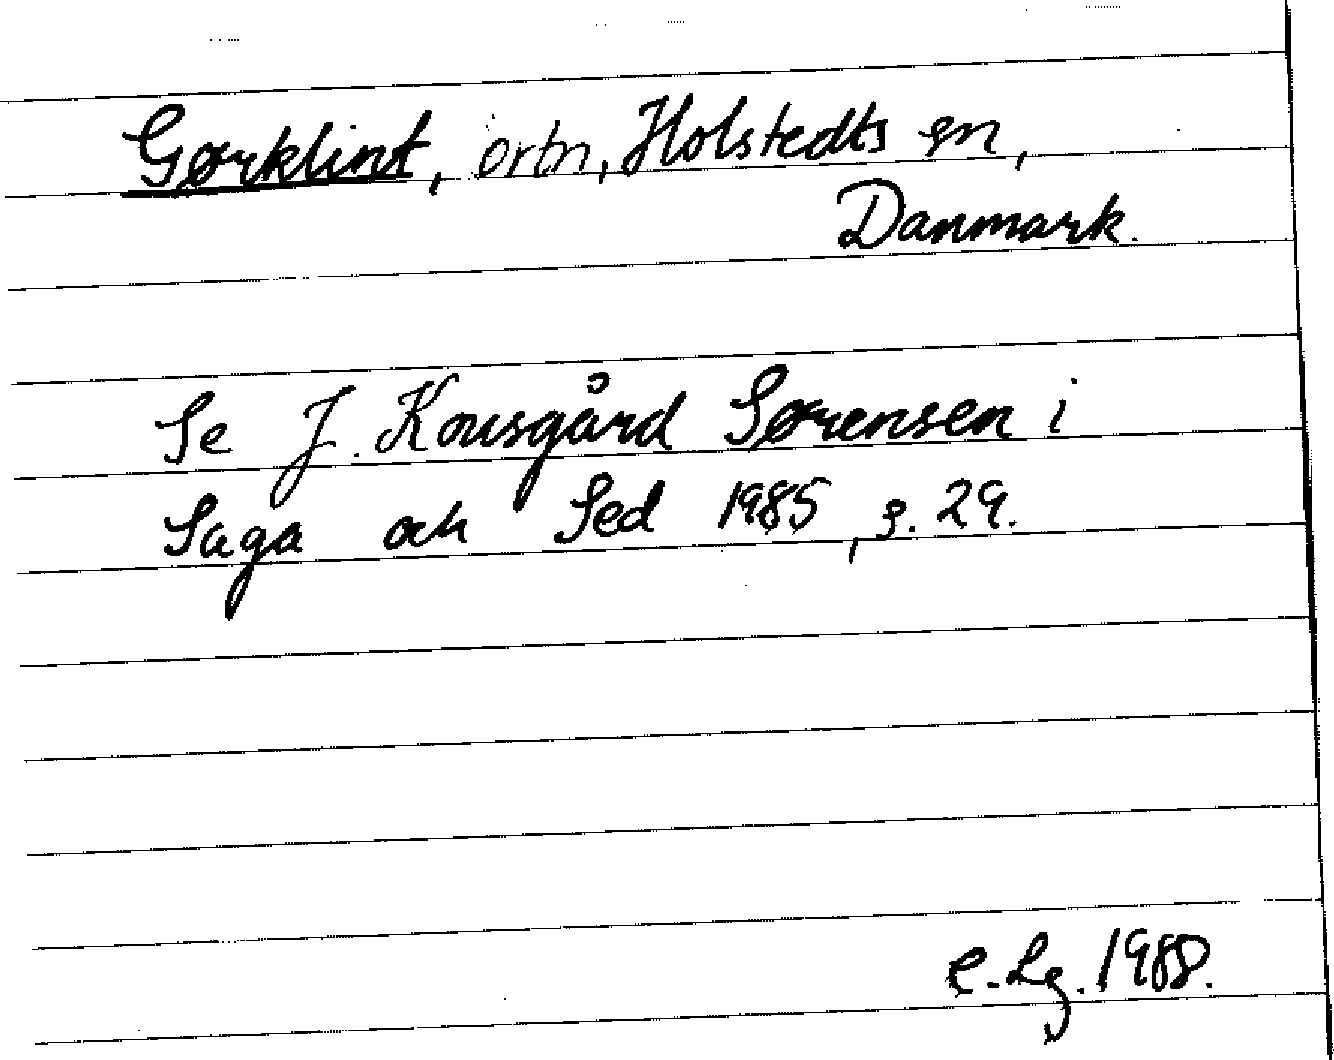 Gørklint, ortn, Holstedts sn,
Danmark.
Se J. Kousgård Sørensen i
Saga och Sed 1985, s. 29.
C. Lg. 1988.